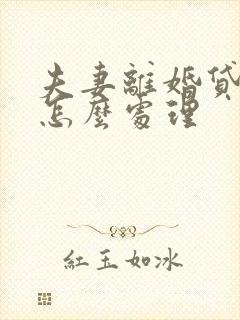 夫妻離婚貸
怎麼處理
紅玉如冰